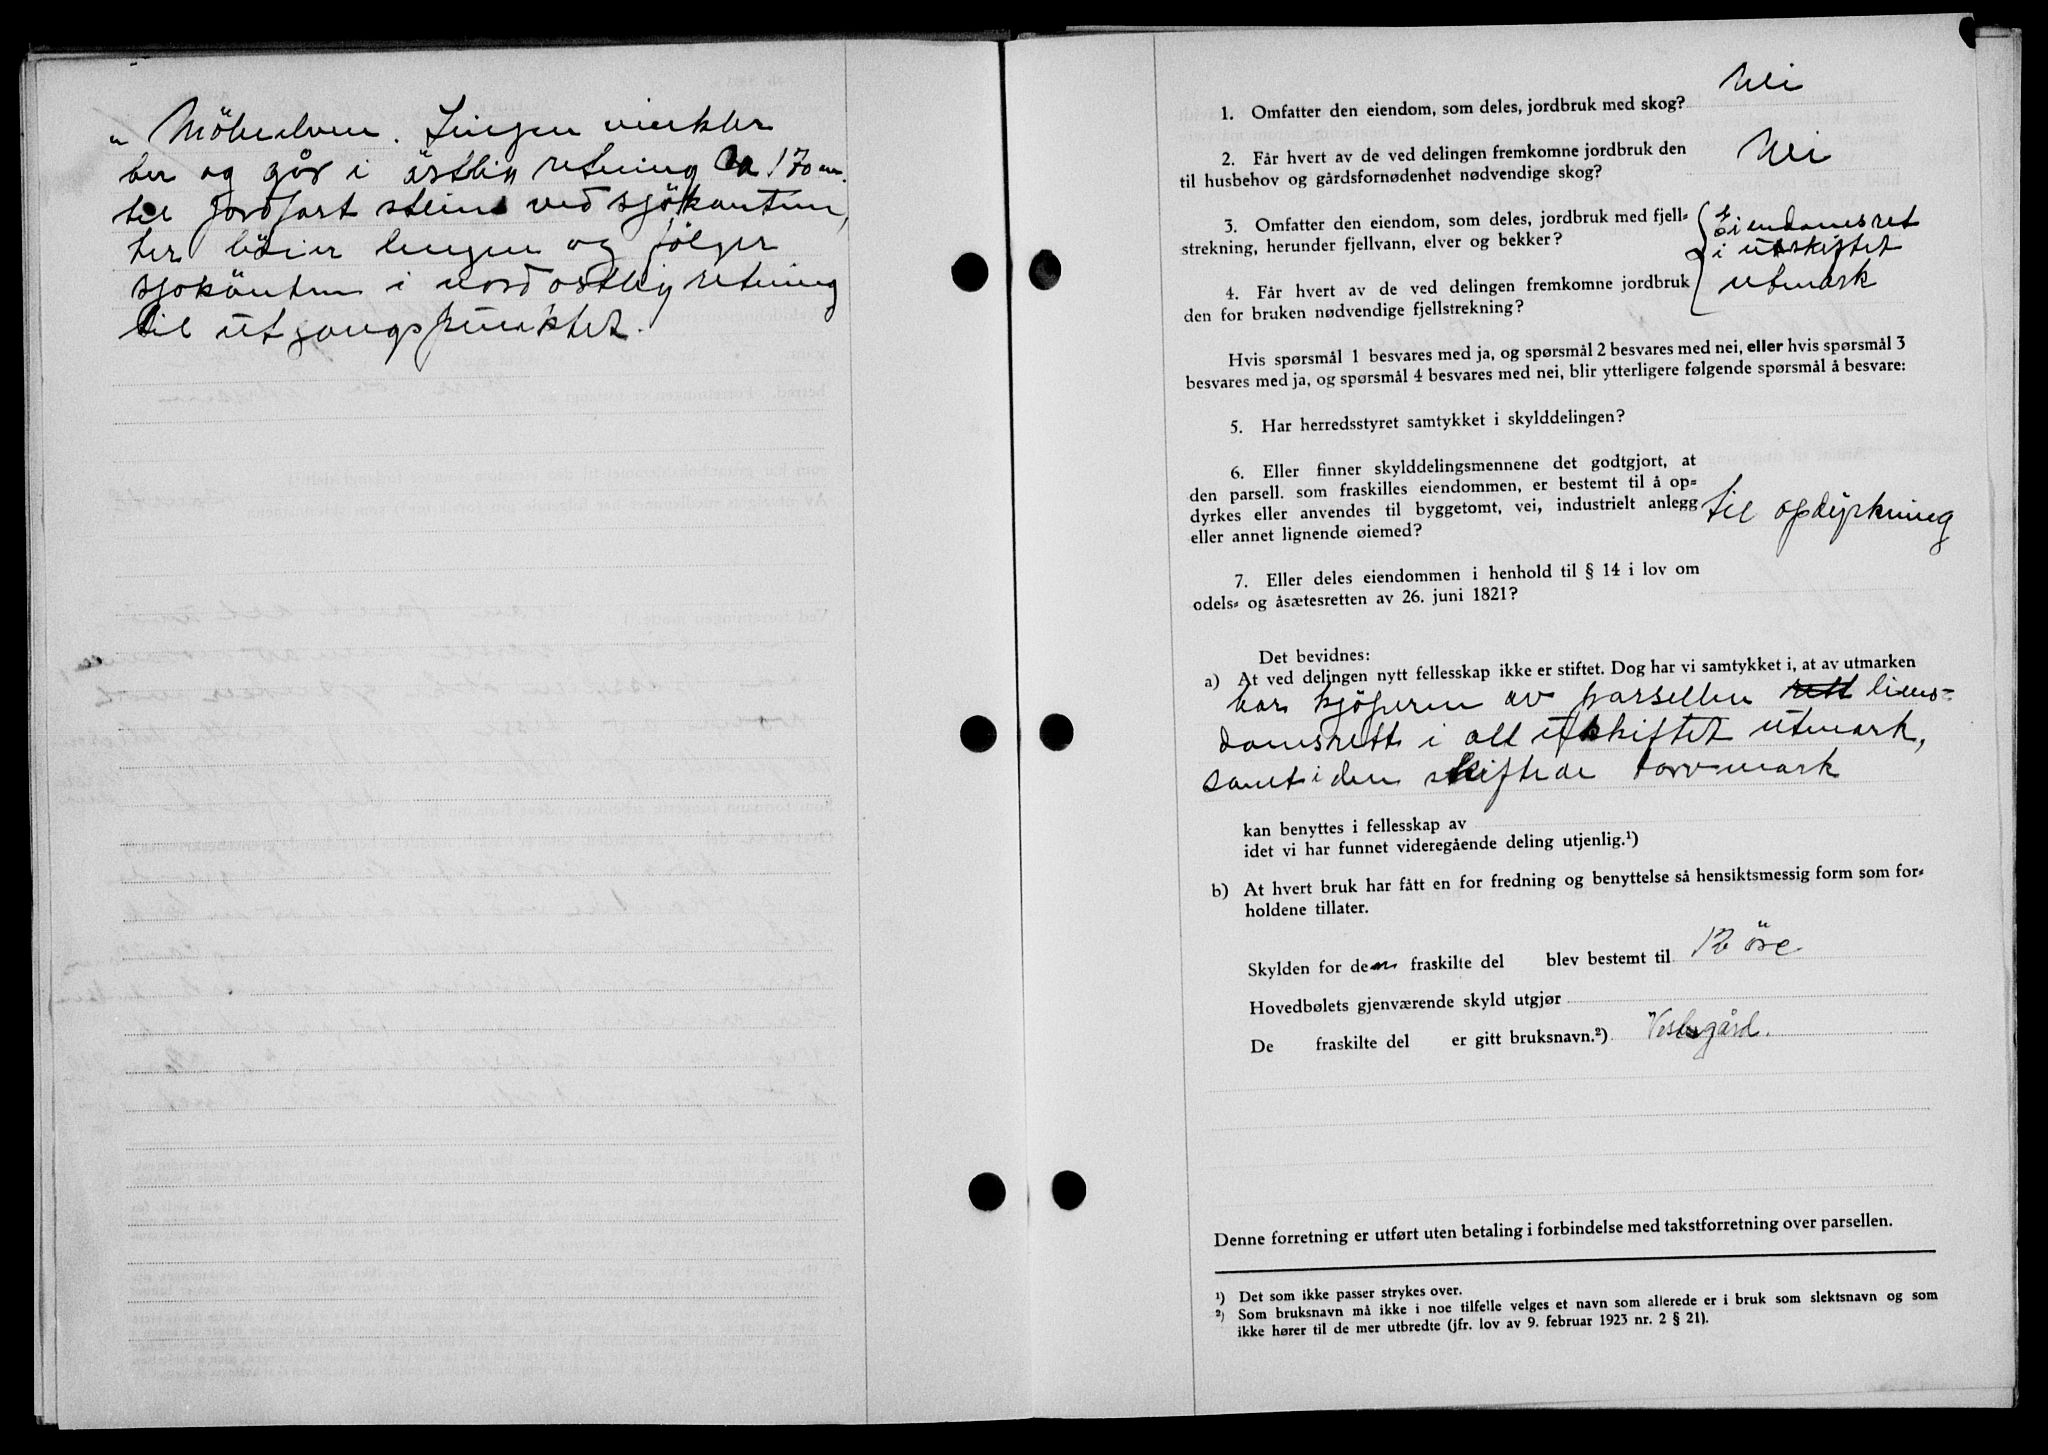 " Möbelven. Lingen vinkler
her og går i östlig retning ca 170 m.
til jordfast stein ved sjökanten,
her böier lingen og fölger
sjökanten i nordostlig retning
til utgangspunktet.
1. Omfatter den eiendom, som deles, jordbruk med skog? Nei
2. Får hvert av de ved delingen fremkomne jordbruk den
til husbehov og gårdsfornødenhet nødvendige skog? Nei
3. Omfatter den eiendom, som deles, jordbruk med fjell-
strekning, herunder fjellvann, elver og bekker?
4. Får hvert av de ved delingen fremkomne jordbruk
den for bruken nødvendige fjellstrekning?
Eiendomsret
i utskiftet
utmark
Hvis spørsmål 1 besvares med ja, og spørsmål 2 besvares med nei, eller hvis spørsmål 3
besvares med ja, og spørsmål 4 besvares med nei, blir ytterligere følgende spørsmål å besvare:
5. Har herredsstyret samtykket i skylddelingen?
6. Eller finner skylddelingsmennene det godtgjort, at
den parsell. som fraskilles eiendommen, er bestemt til å op-
dyrkes eller anvendes til byggetomt, vei, industrielt anlegg
eller annet lignende øiemed?
til opdyrkning
7. Eller deles eiendommen i henhold til § 14 i lov om
odels- og åsætesretten av 26. juni 1821?
Det bevidnes:
a) At ved delingen nytt fellesskap ikke er stiftet. Dog har vi samtykket i, at av utmarken
har kjöperen av parsellen rett eien-
domsrett i alt utskiftet utmark,
samt i den skiftede torvmark
kan benyttes i fellesskap av
idet vi har funnet videregående deling utjenlig.¹)
b) At hvert bruk har fått en for fredning og benyttelse så hensiktsmessig form som for-
holdene tillater.
Skylden for den fraskilte del blev bestemt til 12 öre
Hovedbølets gjenværende skyld utgjør
De fraskilte del er gitt bruksnavn.²) Vestergård.
Denne forretning er utført uten betaling i forbindelse med takstforretning over parsellen.
¹) Det som ikke passer strykes over.
²) Som bruksnavn må ikke i noe tilfelle velges et navn som allerede er i bruk som slektsnavn og som
ikke hører til de mer utbredte (jfr. lov av 9. februar 1923 nr. 2 § 21).